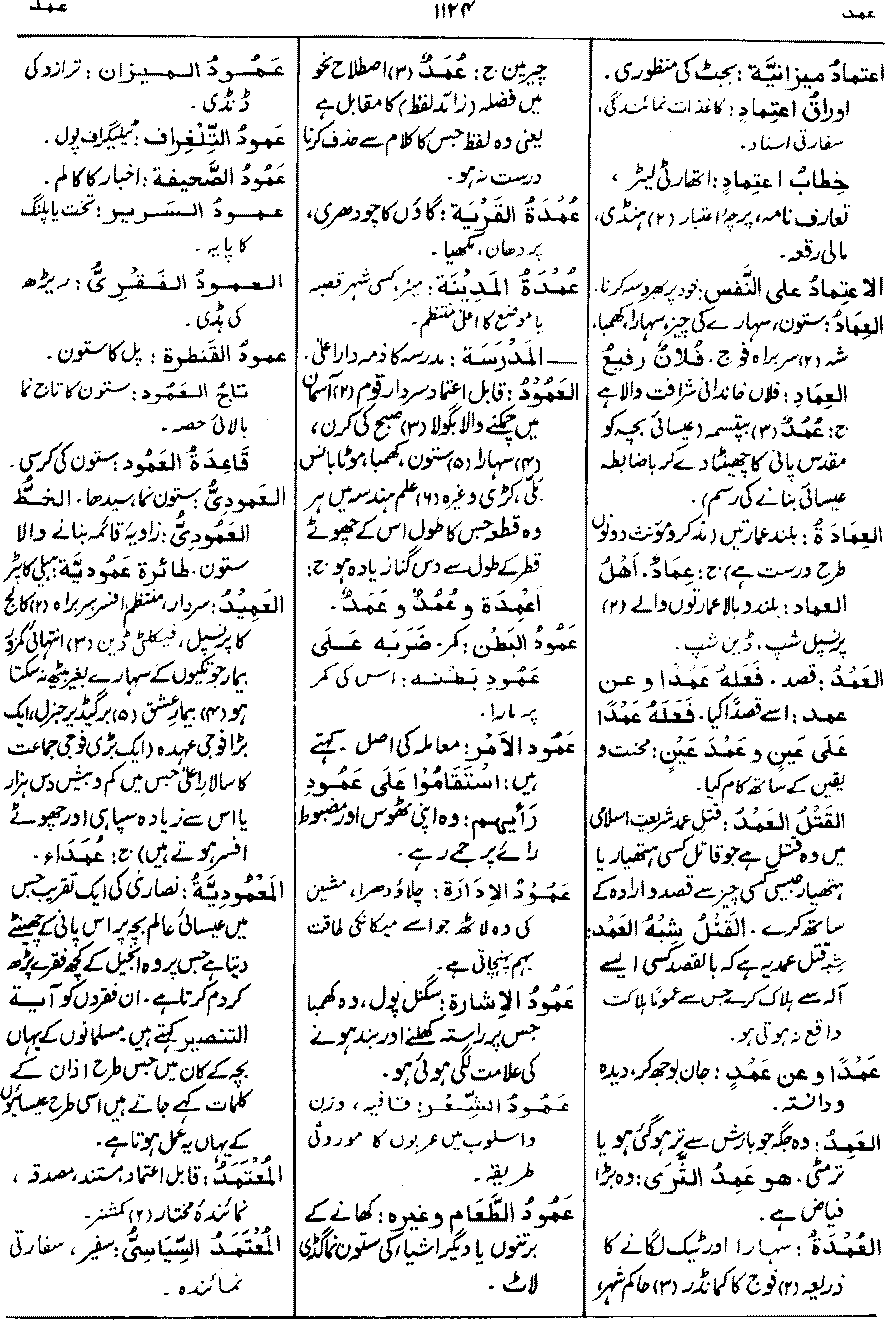 عمد
۱۱۲۴
عمد
اعتمادُ میزانیَّة : بجٹ کی منظوری ۔
اوراقُ اعتِمادِ : کاغذات نمائندگی،
سفارتی اسناد۔
خِطابُ اعتِمادِ : اتھارٹی لیٹر ،
تعارف نامہ، پرچۂ اعتبار (۲) ہنڈی،
مالی رقعہ۔
الاعتمادُ علی النَّفس : خود پر بھروسہ کرنا۔
العِمادُ : ستون، سہارے کی چیز، سہارا، کھمبا،
شہ (۲) سربراہ فوج ۔ فُلانٌ رفیعُ
العِمادِ : فلاں خاندانی شرافت والا ہے
ج : عُمُدٌ (۳) بپتسمہ (عیسائی بچہ کو
مقدس پانی کا چھینٹا دے کر باضابطہ
عیسائی بنانے کی رسم) ۔
العِمَادَةُ : بلند عمارتیں (مذکر و مؤنث دونوں
طرح درست ہے) ج : عِمادٌ ۔ اَھْلُ
العماد : بلند و بالا عمارتوں والے (۲)
پرنسپل شپ ، ڈین شپ ۔
العَمْدُ : قصد ۔ فَعَلَهُ عَمْدًا و عن
عمد : اسے قصدًا کیا ۔ فَعَلَهُ عَمْدًا
عَلَی عَینٍ و عَمْدَ عَیْنٍ : محنت و
یقین کے ساتھ کام کیا۔
القَتْلُ العَمْدُ : قتل عمد شریعت اسلامی
میں وہ قتل ہے جو قاتل کسی ہتھیار یا
ہتھیار جیسی کسی چیز سے قصد و ارادہ کے
ساتھ کرے ۔ القَتْلُ شِبْهُ العَمْدِ:
شبہ قتل عمد یہ ہے کہ بالقصد کسی ایسے
آلہ سے ہلاک کرے جس سے عموماً ہلاکت
واقع نہ ہوتی ہو۔
عَمْدًا و عن عَمْدٍ : جان بوجھ کر، دیدہ
و دانستہ ۔
العَمِدُ : وہ جگہ جو بارش سے تر ہوگئی ہو یا
تر مٹی ۔ ھو عَمِدُ الثَّرَی : وہ بڑا
فیاض ہے ۔
العُمْدَةُ : سہارا اور ٹیک لگانے کا
ذریعہ (۲) فوج کا کمانڈر (۳) حاکم شہر،
چیرمین ج : عُمَدٌ (۳) اصطلاح نحو
میں فضلہ (زائد لفظ) کا مقابل ہے
یعنی وہ لفظ جس کا کلام سے حذف کرنا
درست نہ ہو۔
عُمْدَةُ القَرْیَة : گاؤں کا چودھری،
پردھان، مکھیا ۔
عُمْدَةُ المَدِیْنَة : میئر، کسی شہر قصبہ
یا موضع کا اعلیٰ منتظم ۔
— المَدْرَسَة : مدرسہ کا ذمہ دار اعلیٰ ۔
العَمُوْدُ : قابل اعتماد سردار قوم (۲) آسمان
میں چمکنے والا بگولا (۳) صبح کی کرن ،
(۴) سہارا (۵) ستون، کھمبا، موٹا بانس
بلّی، کڑی وغیرہ (۶) علم ہندسہ میں ہر
وہ قطر جس کا طول اس کے چھوٹے
قطر کے طول سے دس گنا زیادہ ہو ج:
أعْمِدَة و عُمُدٌ و عَمَدٌ ۔
عَمُودُ البَطْن : کمر ۔ ضَرَبَه عَلی
عَمُودِ بَطْنِه : اس کی کمر
پر مارا ۔
عَمُودُ الأمْرِ : معاملہ کی اصل ۔ کہتے
ہیں : اسْتَقَامُوْا عَلَی عَمُودِ
رَأیِھِم : وہ اپنی ٹھوس اور مضبوط
رائے پر جمے رہے ۔
عَمُوْدُ الإدَارَة : چلاؤ دھرا، مشین
کی وہ لاٹھ جو اسے میکانکی طاقت
بہم پہنچاتی ہے ۔
عَمُودُ الإشارة : سگنل پول، وہ کھمبا
جس پر راستہ کھلنے اور بند ہونے
کی علامت لگی ہوئی ہو۔
عَمُودُ الشِّعْر : قافیہ ، وزن
و اسلوب میں عربوں کا موروثی
طریقہ ۔
عَمُودُ الطَّعَامِ وغیرہ : کھانے کے
برتنوں یا دیگر اشیاء کی ستون نما گڈی
لاٹ ۔
عَمُودُ المیزان : ترازو کی
ڈنڈی ۔
عَمُودُ التِّلْغِراف : ٹیلیگراف پول ۔
عَمُودُ الصَّحیفة : اخبار کا کالم ۔
عمود السَریر : تخت یا پلنگ
کا پایہ ۔
العمودُ الفَقْرِیُّ : ریڑھ
کی ہڈی ۔
عمودُ القنطرة : پل کا ستون ۔
تاجُ العَمُود : ستون کا تاج نما
بالائی حصہ ۔
قَاعِدَةُ العَمُودِ : ستون کی کرسی ۔
العَمودِیُّ : ستون نما، سیدھا ۔ الخَطُّ
العَمُودِیُّ : زاویۂ قائمہ بنانے والا
ستون ۔ طائرة عَمُودِیَّة : ہیلی کاپٹر
العَمِیْدُ : سردار، منتظم افسر، سربراہ (۲) کالج
کا پرنسپل ، فیکلٹی ڈین (۳) انتہائی کمزور
بیمار جو تکیوں کے سہارے بغیر بیٹھ نہ سکتا
ہو (۴) بیمار عشق (۵) برگیڈیر جنرل، ایک
بڑا فوجی عہدہ (ایک بڑی فوجی جماعت
کا سالار اعلیٰ جس میں کم و بیش دس ہزار
یا اس سے زیادہ سپاہی اور چھوٹے
افسر ہوتے ہیں) ج : عُمَدَاء ۔
المَعْمُودِیَّةُ : نصاریٰ کی ایک تقریب جس
میں عیسائی عالم بچہ پر اس پانی کے چھینٹے
دیتا ہے جس پر وہ انجیل کے کچھ فقرے پڑھ
کر دم کرتا ہے ۔ ان فقروں کو آیة
التنصیر کہتے ہیں۔ مسلمانوں کے یہاں
بچہ کے کان میں جس طرح اذان کے
کلمات کہے جاتے ہیں اسی طرح عیسائیوں
کے یہاں یہ عمل ہوتا ہے ۔
المُعْتَمَدُ : قابل اعتماد، مستند، مصدقہ ،
نمائندۂ مختار (۲) کمشنر ۔
المُعْتَمَدُ السِّیَاسِیُّ : سفیر ، سفارتی
نمائندہ ۔